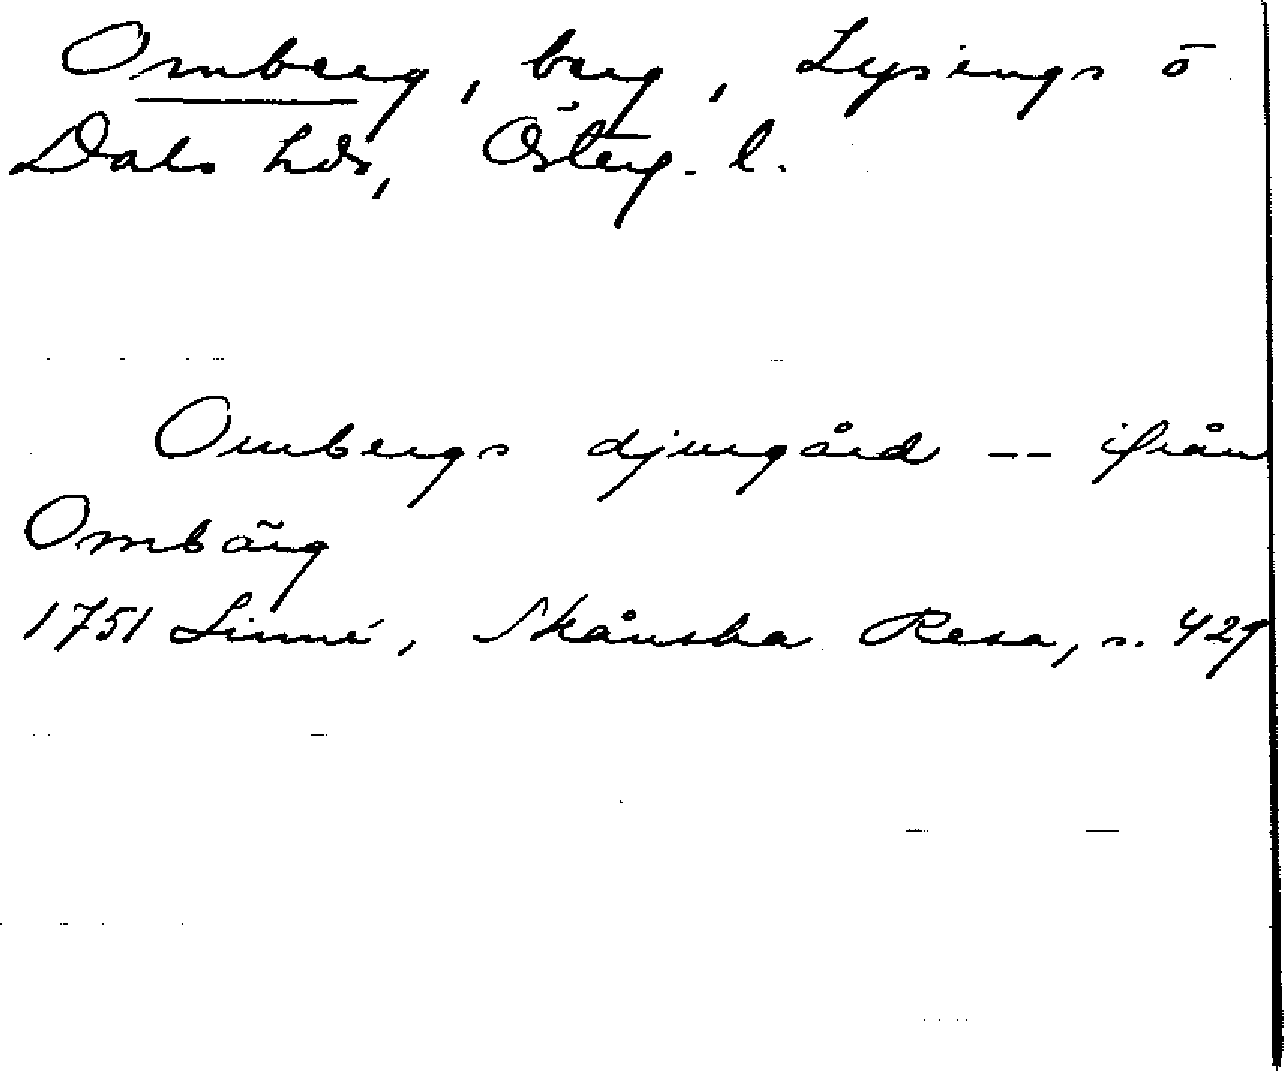 Omberg, berg, Lysings o
Dals hdr, Österg. l.
Ombergs djurgård -- ifrån
Ombärg
1751 Linné, Skånska Resa, s. 429